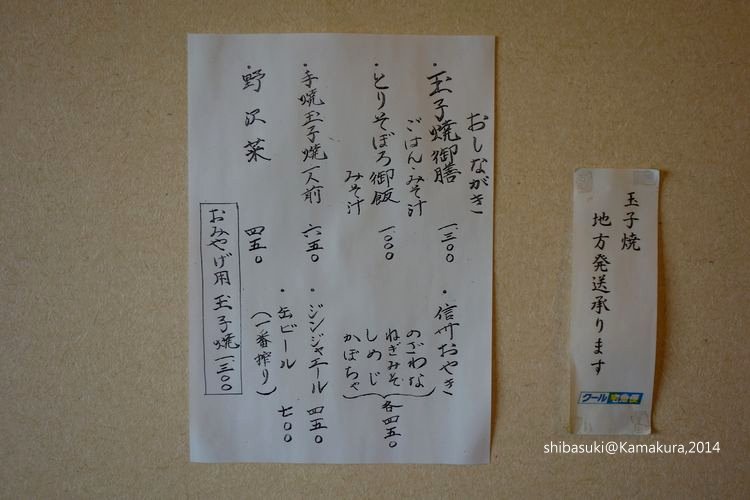 おしながき
・玉子焼御膳 一、三〇〇
ごはん・みそ汁
・とりそぼろ御飯 一、〇〇〇
みそ汁
・手焼玉子焼一人前 六五〇
・野沢菜 四五〇
・信州おやき
のざわな
ねぎみそ
しめじ
かぼちゃ
各四五〇
・ジンジャエール 四五〇
・缶ビール 七〇〇
(一番搾り)
おみやげ用 玉子焼 一、三〇〇
玉子焼
地方発送承ります
クール宅急便
shibasuki@Kamakura,2014